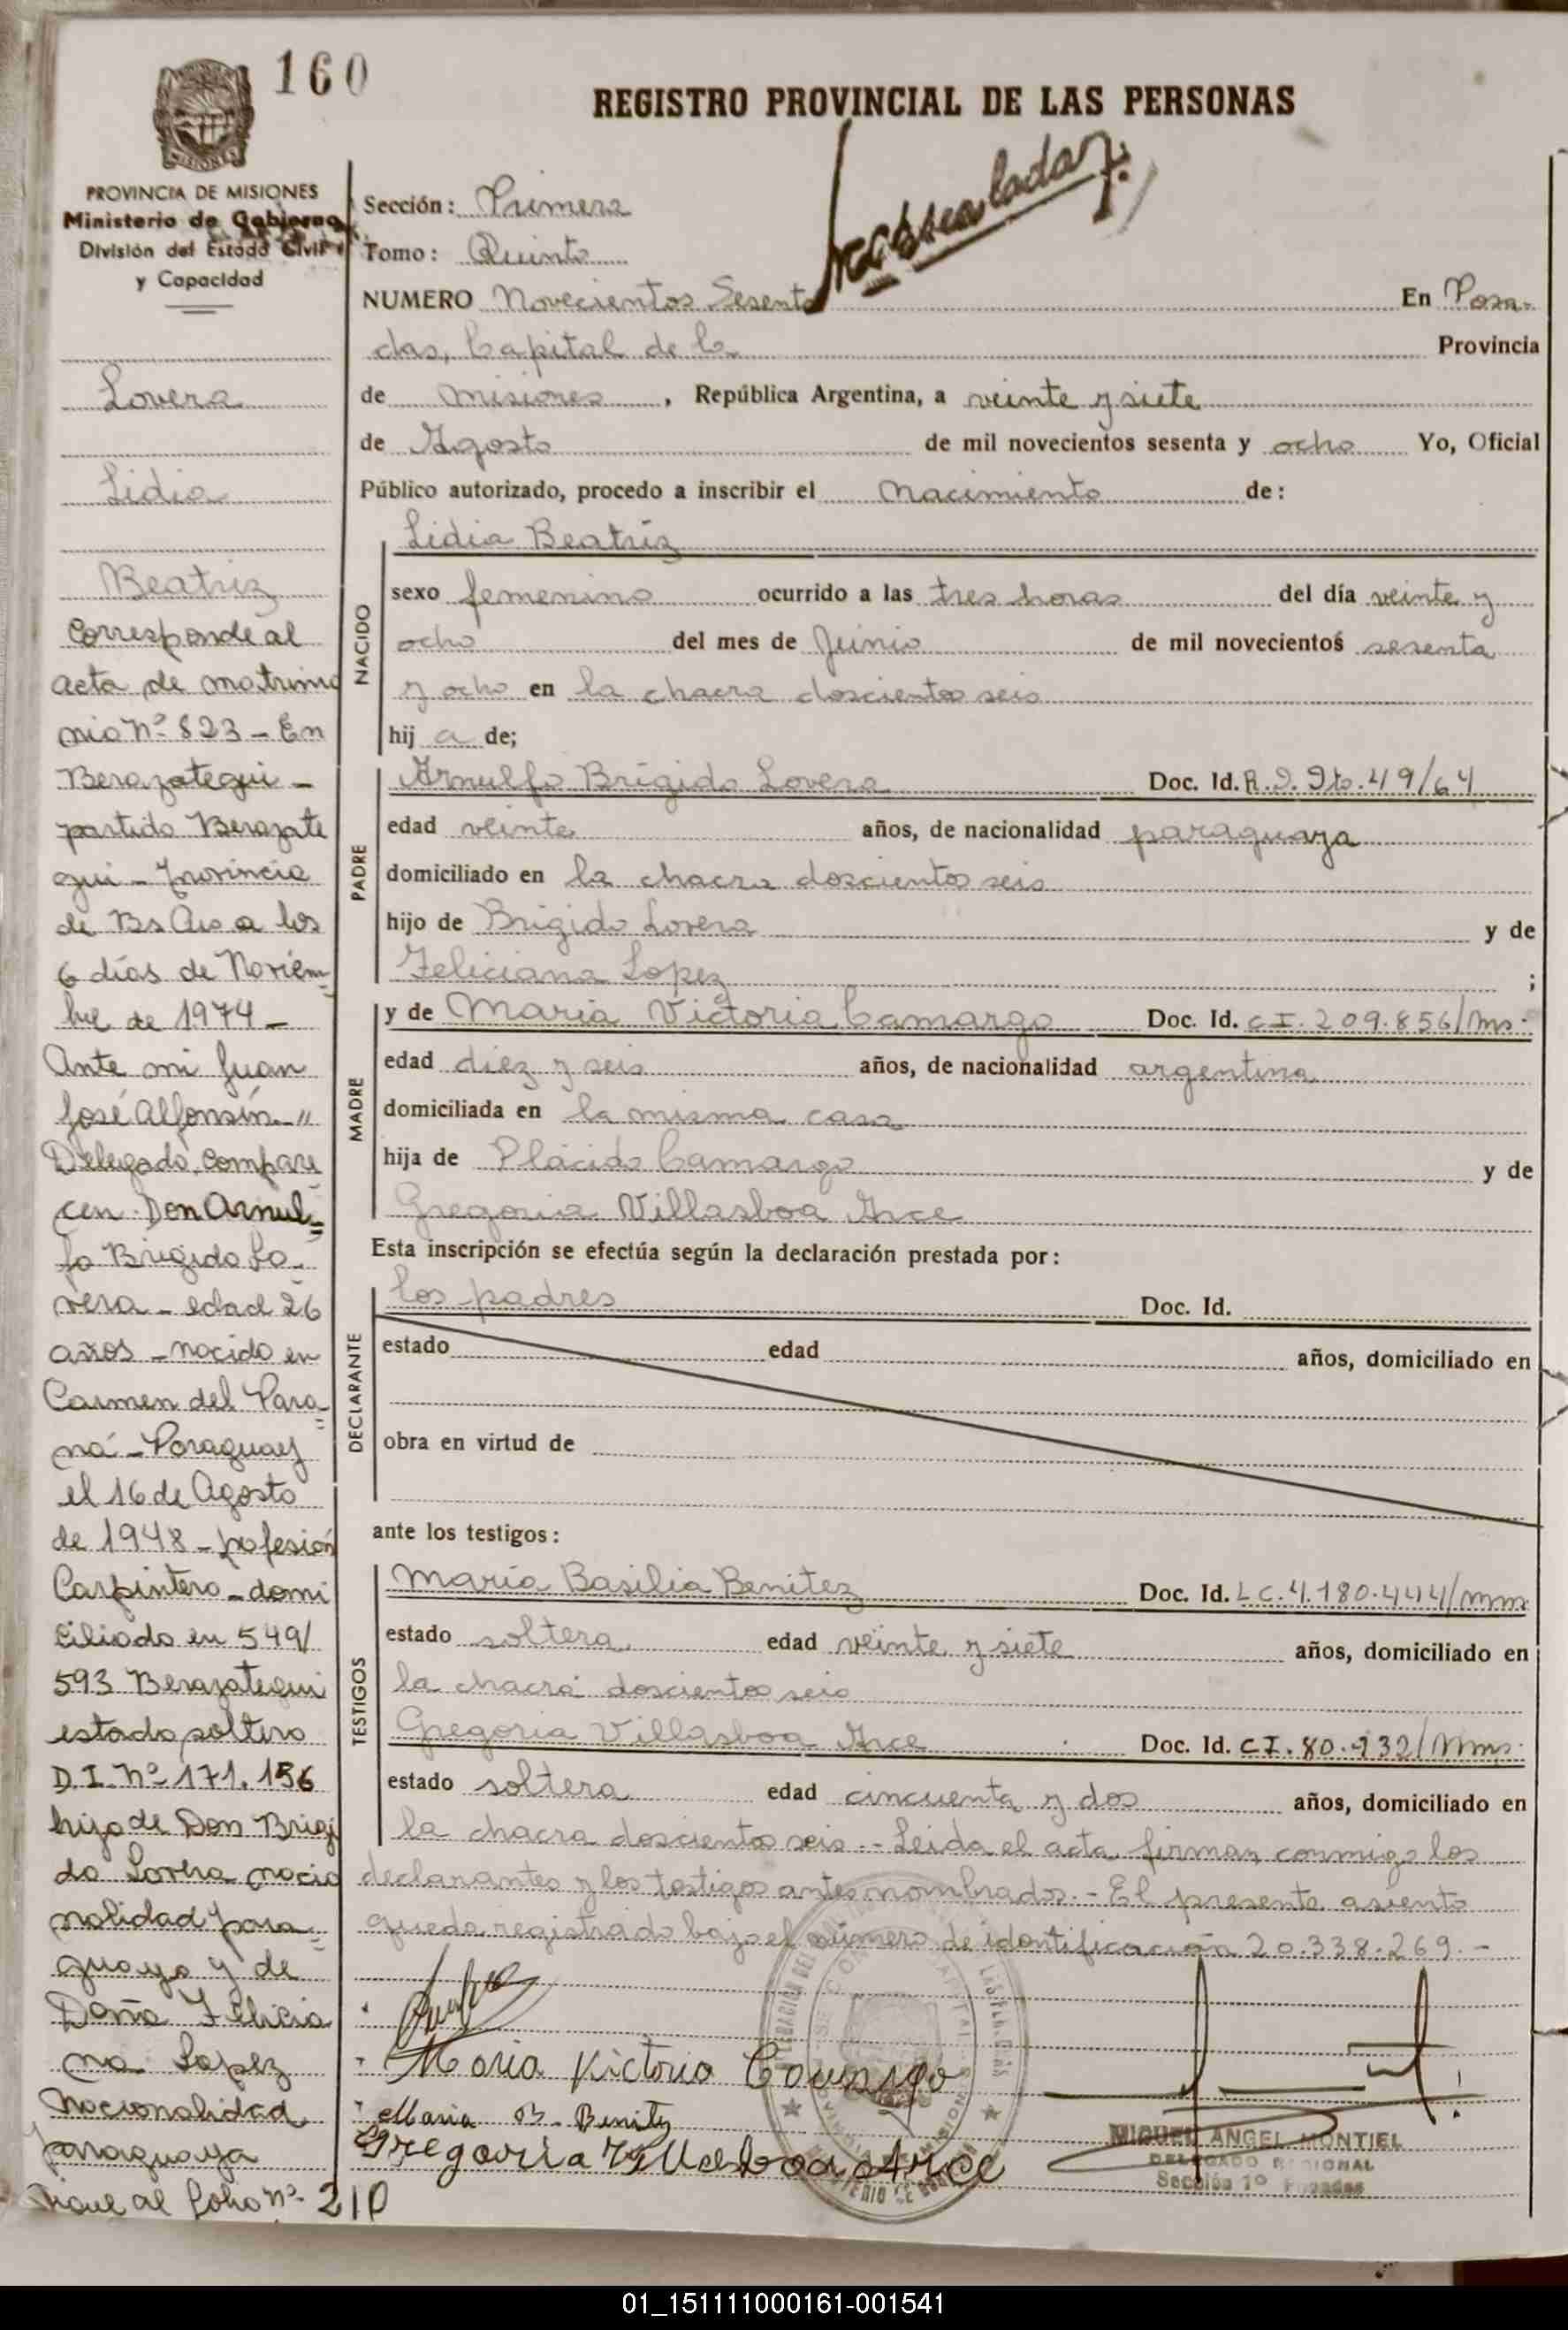 160
REGISTRO PROVINCIAL DE LAS PERSONAS
PROVINCIA DE MISIONES
Ministerio de Gobierno
División del Estado Civil
y Capacidad
Sección: Primera
Tomo: Quinto
NUMERO Novecientos Sesenta En Posa-
das, Capital de la Provincia
de Misiones, República Argentina, a veinte y siete
de Agosto de mil novecientos sesenta y ocho Yo, Oficial
Público autorizado, procedo a inscribir el Nacimiento de:
NACIDO
Lidia Beatríz
sexo femenino ocurrido a las tres horas del día veinte y
ocho del mes de Junio de mil novecientos sesenta
y ocho en la chacra doscientos seis
hij a de;
PADRE
Arnulfo Brígido Lovera Doc. Id. 49/64
edad veinte años, de nacionalidad paraguaya
domiciliado en la chacra doscientos seis
hijo de Brígido Lovera y de
Feliciana Lopez ;
MADRE
y de María Victoria Camargo Doc. Id. C.I. 209.856/Ms.
edad diez y seis años, de nacionalidad argentina
domiciliada en la misma casa
hija de Plácido Camargo y de
Gregoria Villasboa Arce
Esta inscripción se efectúa según la declaración prestada por:
DECLARANTE
los padres Doc. Id.
estado edad años, domiciliado en
obra en virtud de
ante los testigos:
TESTIGOS
María Basilia Benitez Doc. Id. L.C. 4.180.444/
estado soltera edad veinte y siete años, domiciliado en
la chacra doscientos seis
Gregoria Villasboa Arce Doc. Id. C.I. 80.932/
estado soltera edad cincuenta y dos años, domiciliado en
la chacra doscientos seis.- Leida el acta, firman conmigo los
declarantes y los testigos antes nombrados.- El presente asiento
queda registrado bajo el número de identificación 20.338.269.-
Maria Victoria Camargo
Maria B. Benitez
Gregoria Villasboa Arce
MIGUEL ANGEL MONTIEL
DELEGADO REGIONAL
Sección 1º Posadas
Lovera
Lidia
Beatriz
Corresponde al
acta de matrimo
nio Nº 823 - En
Berazategui -
partido Berazate
gui - Provincia
de Bs As a los
6 días de Noviem-
bre de 1974 -
Ante mi Juan
José Alfonsín -"
Delegado, compare
cen Don Arnul-
fo Brigido Lo-
vera - edad 26
años - nacido en
Carmen del Para-
ná - Paraguay
el 16 de Agosto
de 1948 - profesión
Carpintero - domi
ciliado en 549/
593 Berazategui
estado soltero
D.I. Nº 171.156
hijo de Don Brigi
do Lovera nacio
nalidad para-
guaya y de
Doña Felicia
na Lopez
Nacionalidad
paraguaya
Sigue al folio nº 210
01_151111000161-001541